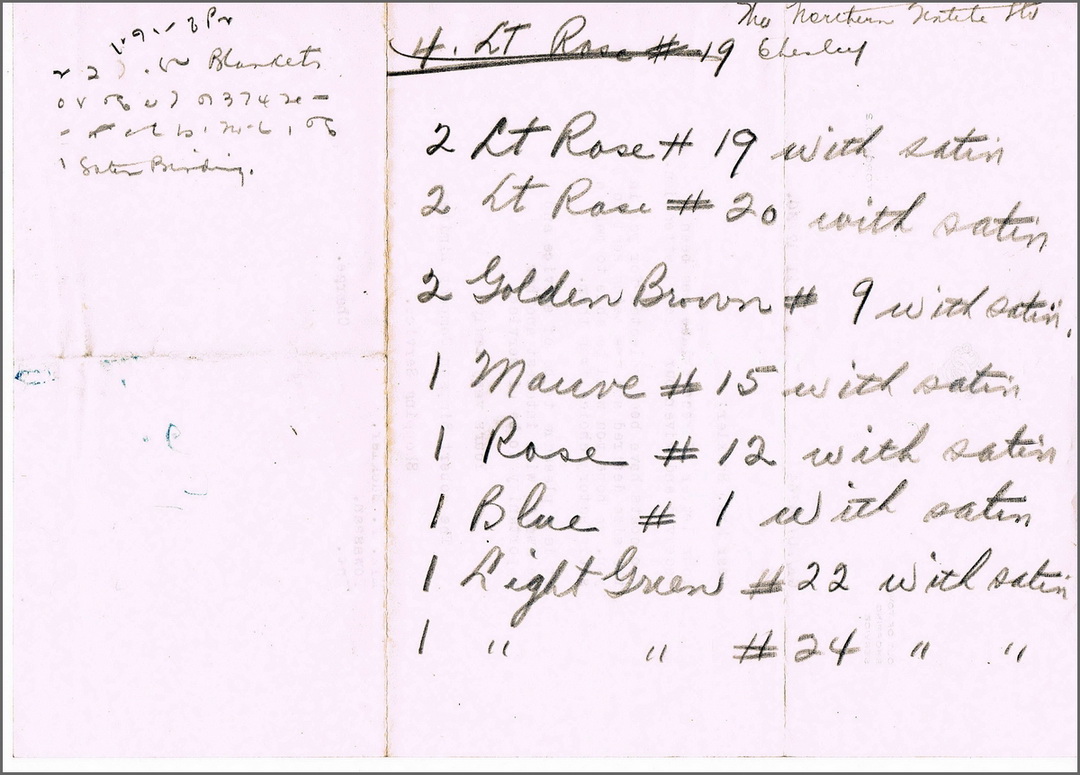 Blankets
1 Satin Binding.
The Northern Textile Ltd
Chesley
4. Lt Rose # 19
2 Lt Rose # 19 with satin
2 Lt Rose # 20 with satin
2 Golden Brown # 9 with satin.
1 Mauve # 15 with satin
1 Rose # 12 with satin
1 Blue # 1 with satin
1 Light Green # 22 with satin
1 " " # 24 " "